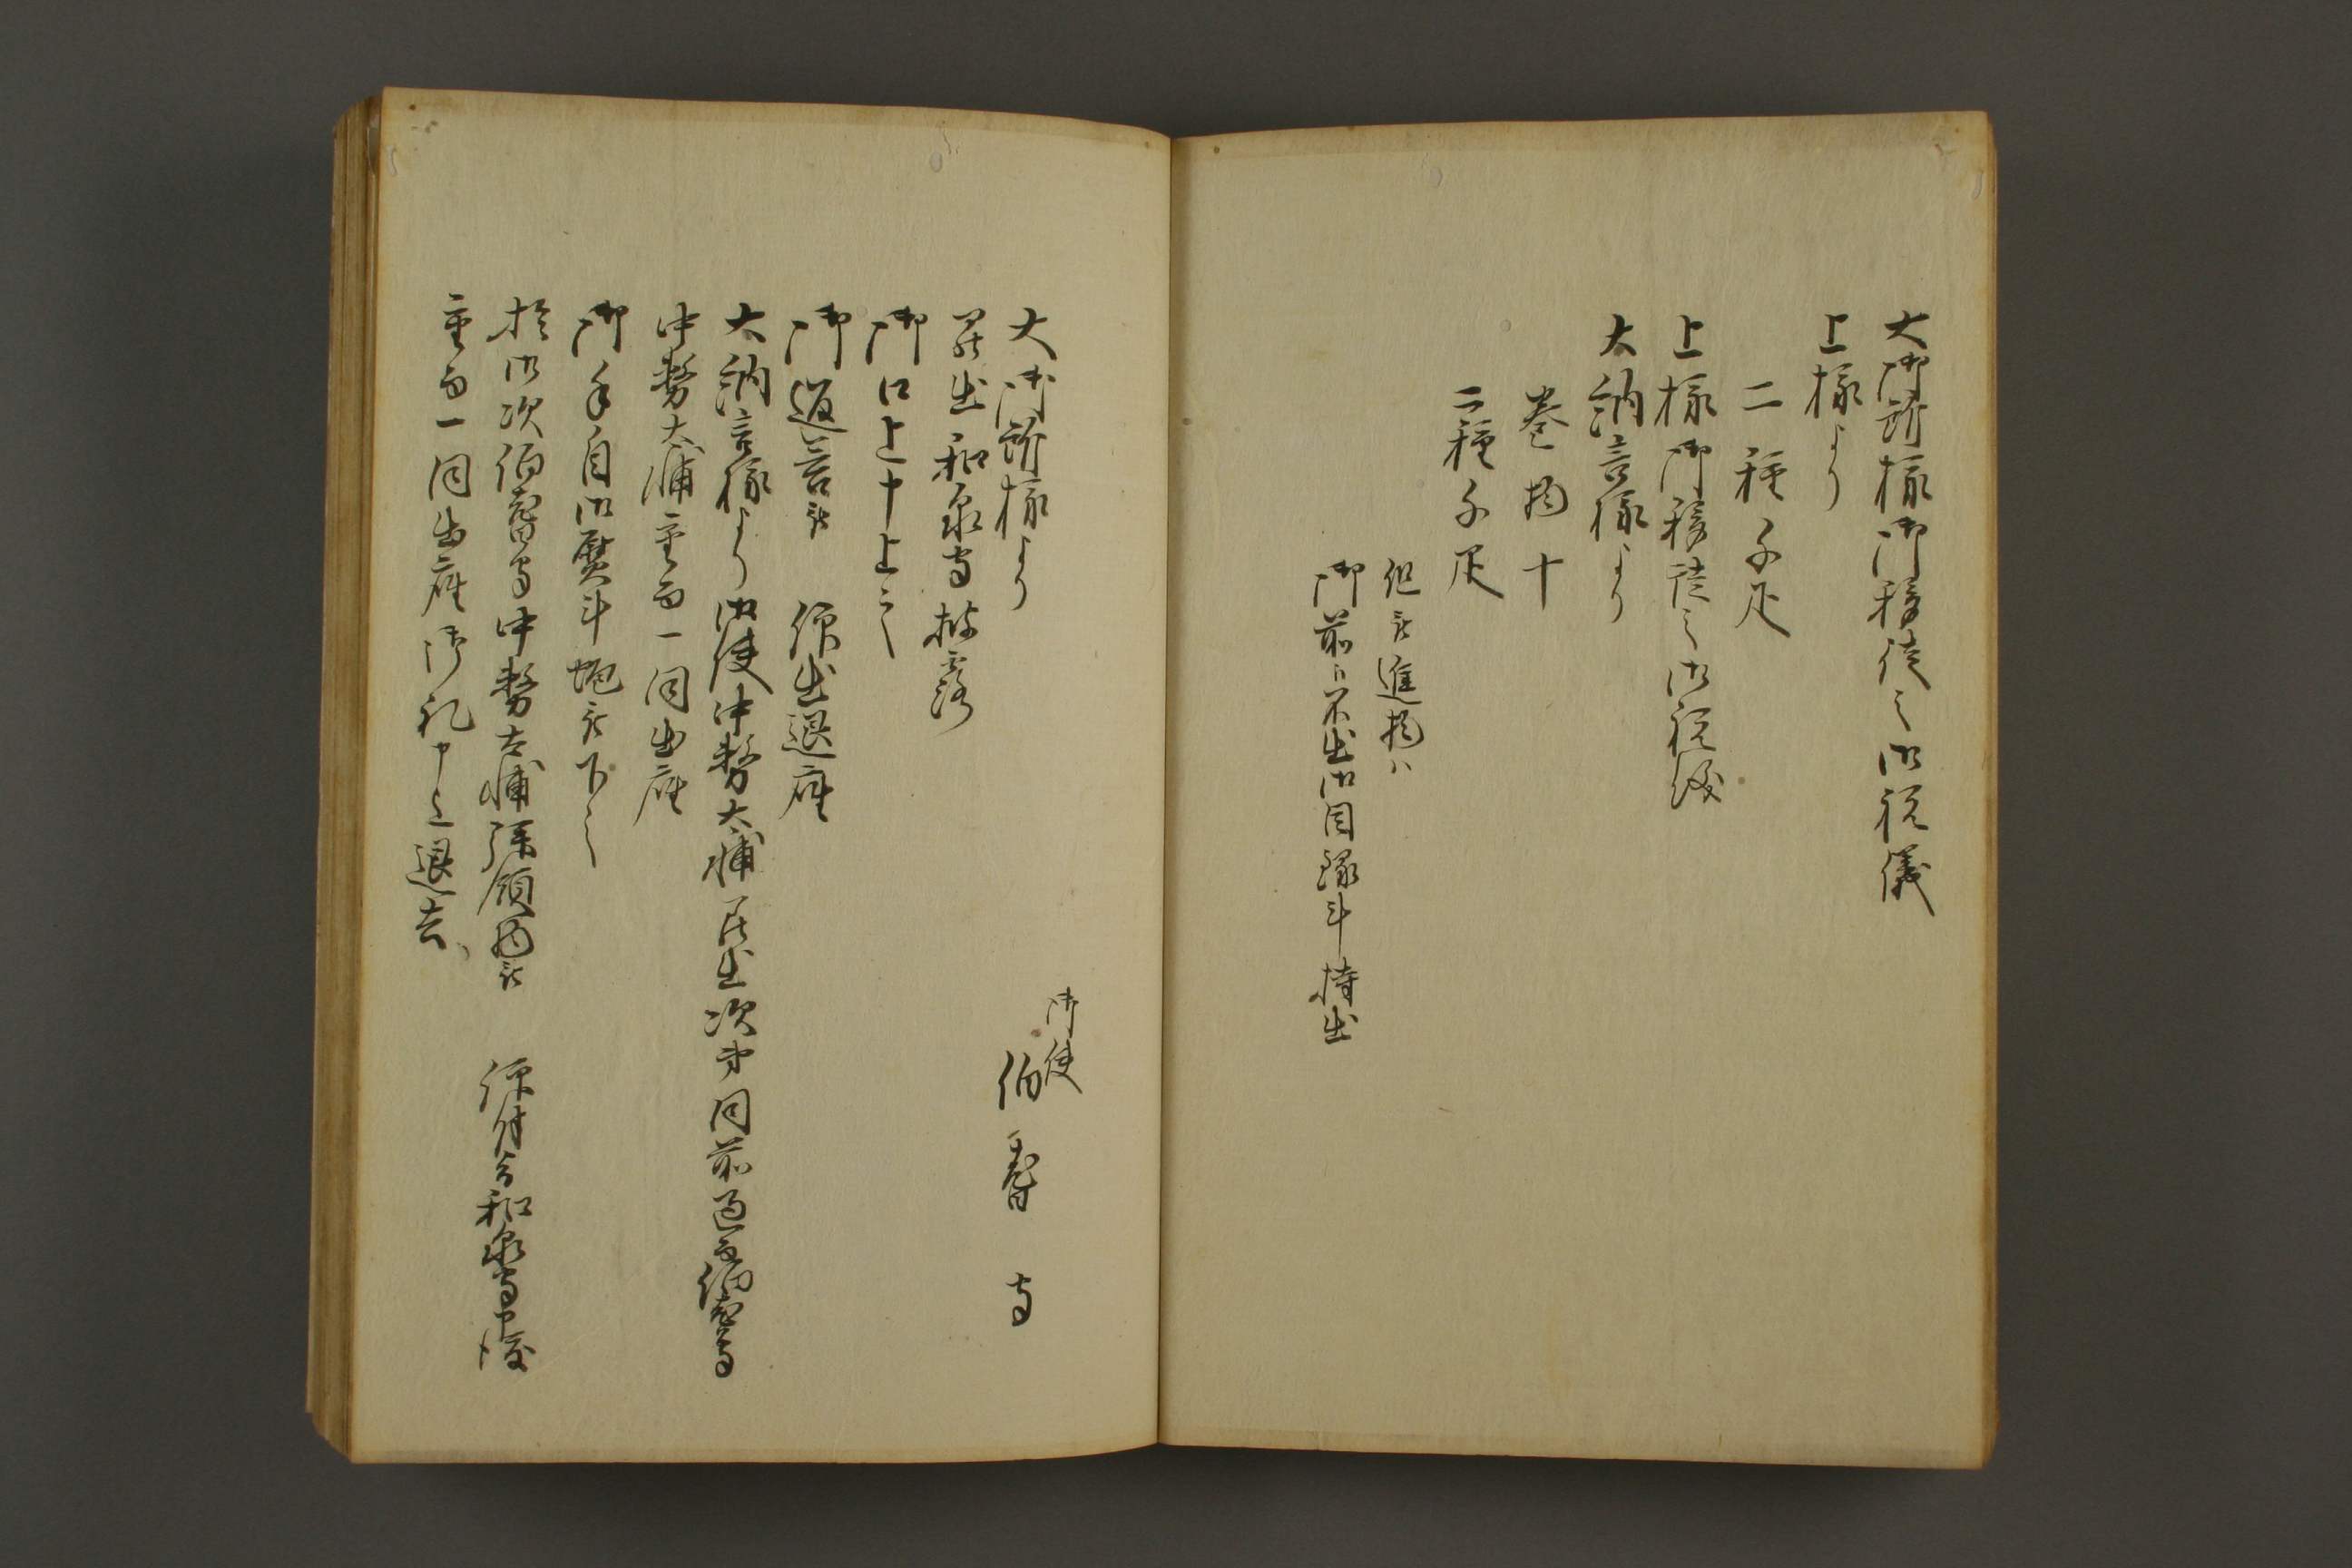 大御所様御移徙之御祝儀
上様より
二種千疋
上様御移徙之御祝儀
大納言様より
巻物十
二種千疋
但被進物ハ
御前ニ不出御目録斗持出
御使
大御所様より 伯耆守
罷出和泉守披露
御口上申上之
御返答被 仰出退座
大納言様より御使中務大輔罷出次第同前過而伯耆守
中務大輔重而一同出座
御手自御熨斗蚫被下之
於御次伯耆守中務大輔拝領物被 仰付旨和泉守申渡
重而一同出座御礼申上退去